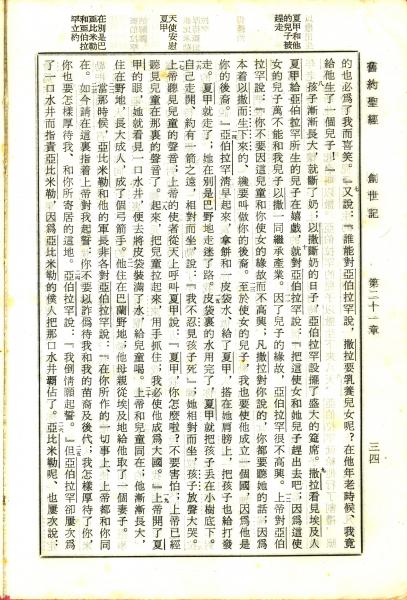 舊約聖經　創世記　第二十一章　三四
夏甲和他的兒子被趕走
天使安慰夏甲
在別是巴亞比米勒和亞伯拉罕立約
的也必爲了我而喜笑。』又說：『誰能對亞伯拉罕說，撒拉要乳養兒女呢？在他年老時候、我竟
給他生了一個兒子！』
孩子漸漸長大，就斷了奶；以撒斷奶的日子，亞伯拉罕設擺了盛大的筵席。撒拉看見埃及人
夏甲給亞伯拉罕所生的兒子在嬉戲，就對亞伯拉罕說：『把這使女和她兒子趕出去吧；因爲這使
女的兒子萬不能和我兒子以撒一同繼承產業。因了兒子的緣故，亞伯拉罕很不高興。上帝對亞伯
拉罕說：『你不要因這兒童和你使女的緣故而不高興；凡撒拉對你說的，你都要聽她的話；因爲
本着以撒而生下來的、纔要叫做你的後裔。至於使女的兒子，我也要使他成立一個國，因爲他是
你的後裔。』亞伯拉罕清早起來，拿餅和一皮袋水，給了夏甲，搭在她肩膀上，把孩子也給打發
走。夏甲就走了；她在別是巴野地走迷了路。皮袋裏的水用完了，夏甲就把孩子丟在小樹底下。
自己走開、約有一箭之遠，相對而坐，說：『我不忍見孩子死』；她相對而坐，孩子放聲大哭。
上帝聽見兒童的聲音；上帝的使者從天上呼叫夏甲說：『夏甲，你怎麼啦？不要害怕；上帝已經
聽見兒童在那裏的聲音了。起來，把兒童拉起來，用手抓住；我必使他成爲大國。』上帝開了夏
甲的眼、她就看見一口水井，便去將皮袋裝滿了水，給兒童喝。上帝和兒童同在；他漸漸長大，
住在野地，長大成人，成了個弓箭手。他住在巴蘭野地；他母親從埃及地給他取了一個妻子。
當那時候、亞比米勒和他的軍長非各對亞伯拉罕說：『在你所作的一切事上、上帝都和你同
在。如今請在這裏指着上帝對我起誓、你不要以詐僞待我和我的苗裔及後代；我怎樣厚待了你，
你也要怎樣厚待我、和你所寄居的這地。亞伯拉罕說：『我倒情願起誓。』但亞伯拉罕卻屢次爲
了一口水井而指責亞比米勒，因爲亞比米勒的僕人把那口水井霸佔了。亞比米勒呢、也屢次說；